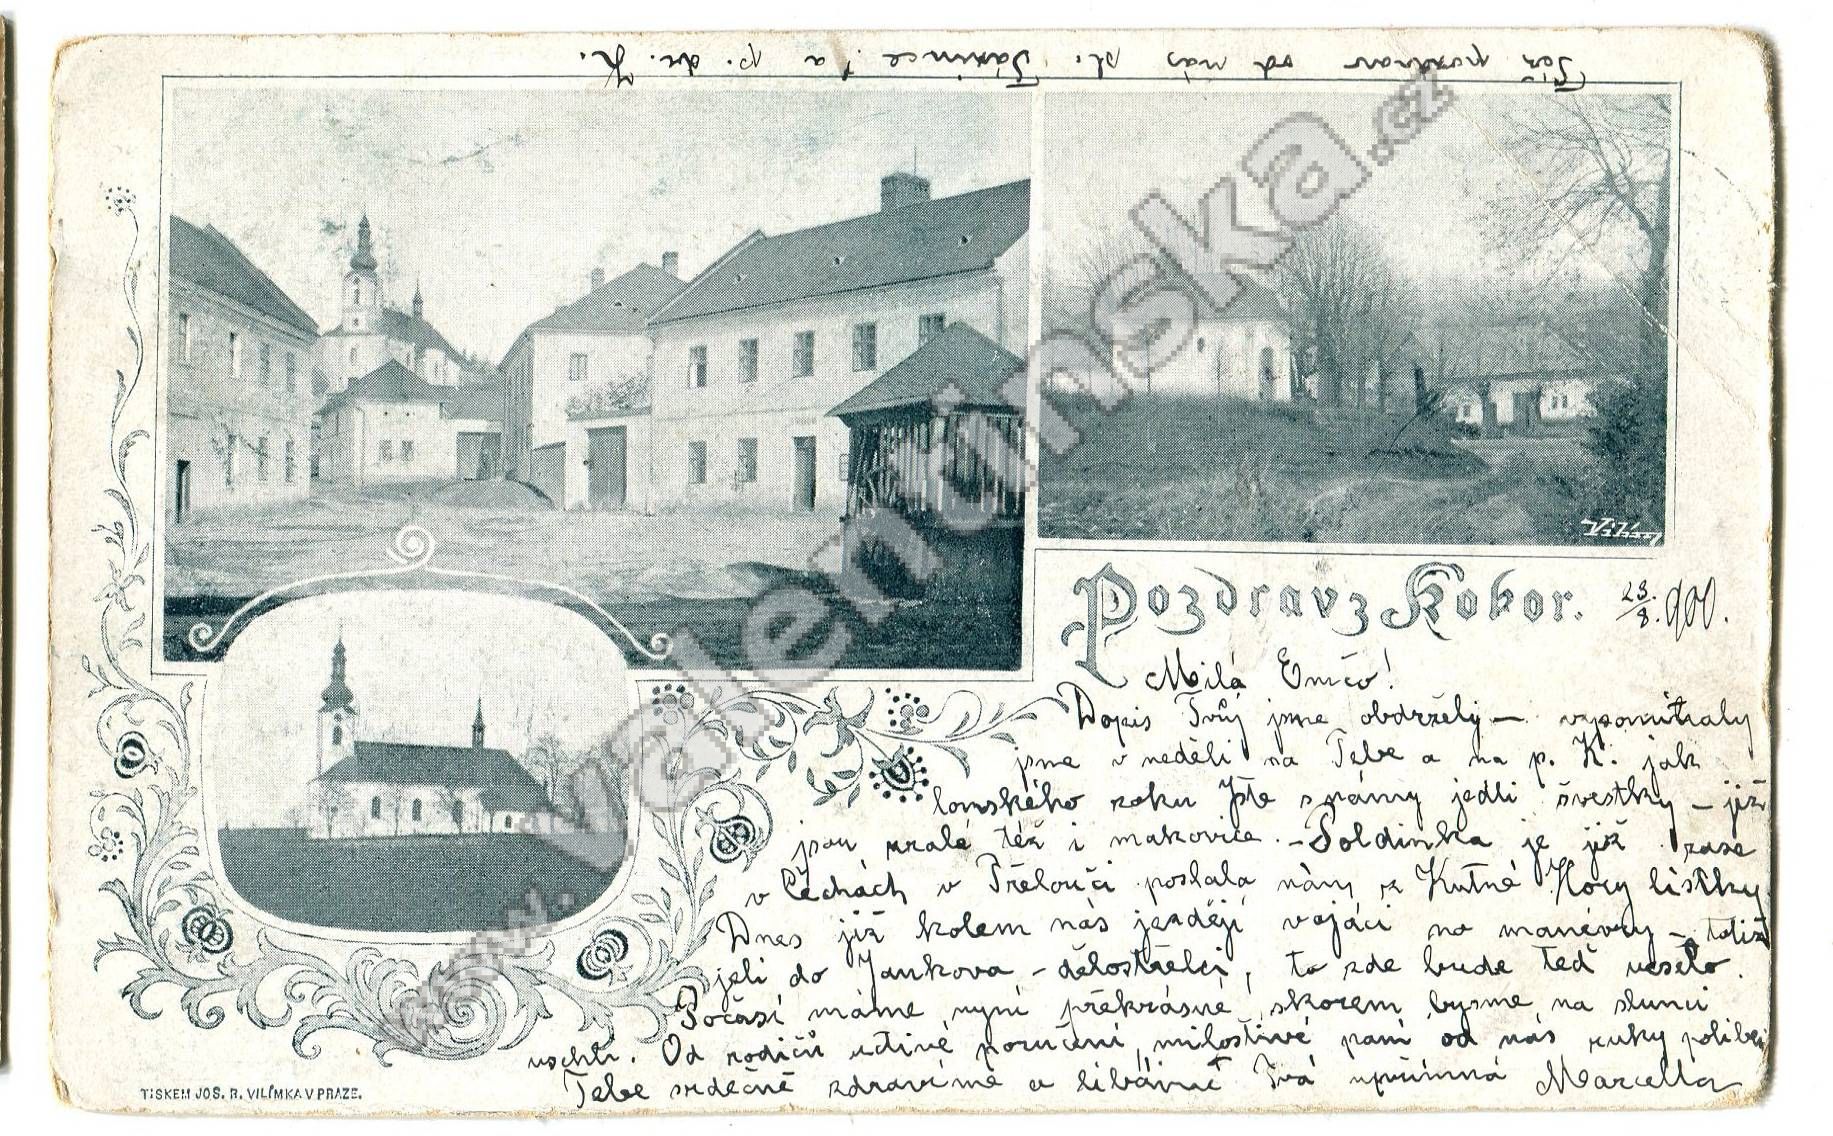 Též pozdrav od nás sl. Tánince a p. dr. K.
www.valentinska.cz
Vilím
Pozdrav z Kobor.
23./8. 900.
Milá Emčo!
Dopis Tvůj jsme obdržely – vzpomínaly
jsme v neděli na Tebe a na p. K. jak
lonského roku jste s námy jedli švestky – již
jsou zralé též i makovice. – Poldinka je již zase
v Čechách v Přelouči poslala nám z Kutné Hory lístky
Dnes již kolem nás jezdějí vojáci na manévry – totiž
jeli do Jankova – dělostřelci, to zde bude teď veselo.
Počasí máme nyní překrásné, skorem bysme na slunci
uschli. Od rodičů uctivé poručení, milostivé paní od nás ruky políbení
Tebe srdečně zdravíme a líbáme Tvá upřímná Marcella
TISKEM JOS. R. VILÍMKA V PRAZE.